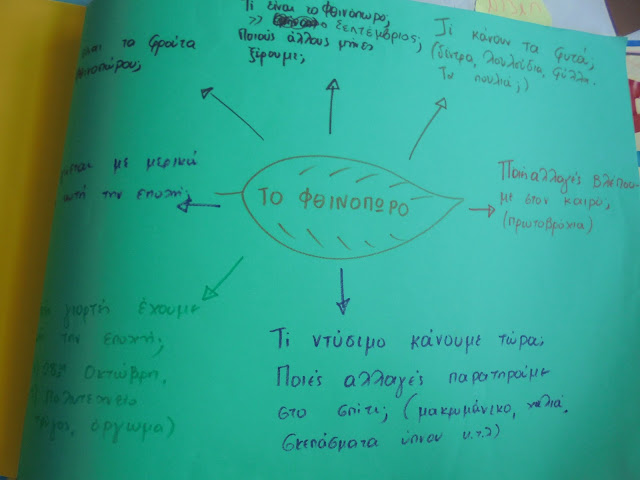 Τι είναι το φθινόπωρο;
>> ο Σεπτέμβριος;
Ποιούς άλλους μήνες
ξέρουμε;
Τι κάνουν τα φυτά;
(δέντρα, λουλούδια, φύλλα.
Τα πουλιά;)
είναι τα φρούτα
φθινοπώρου;
με μερικά
αυτή την εποχή;
ΤΟ ΦΘΙΝΟΠΩΡΟ
αλλαγές βλέπου-
με στον καιρό;
(πρωτοβρόχια)
γιορτή έχουμε
την εποχή;
28η Οκτώβρη,
Πολυτεχνείο
όργωμα)
Τι ντύσιμο κάνουμε τώρα;
Ποιές αλλαγές παρατηρούμε
στο σπίτι; (μακρυμάνικο, χαλιά,
σκεπάσματα ύπνου κ.τ.λ)